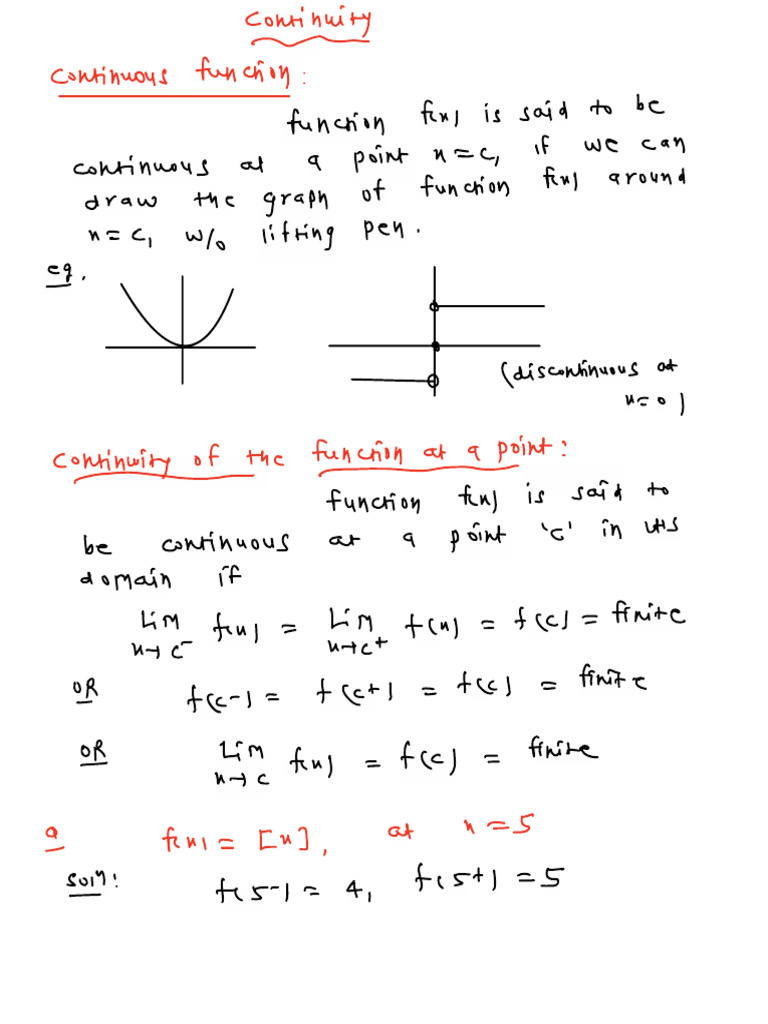 Continuity
Continuous function:
function f(x) is said to be
continuous at a point x=c, if we can
draw the graph of function f(x) around
x=c, w/o lifting pen.
eg.
(discontinuous at
x=0)
Continuity of the function at a point:
function f(x) is said to
be continuous at a point 'c' in its
domain if
Lim f(x) = Lim f(x) = f(c) = finite
x→c⁻ x→c⁺
OR f(c-) = f(c+) = f(c) = finite
OR Lim f(x) = f(c) = finite
x→c
Q f(x) = [x], at x=5
Solⁿ: f(5-) = 4, f(5+) = 5